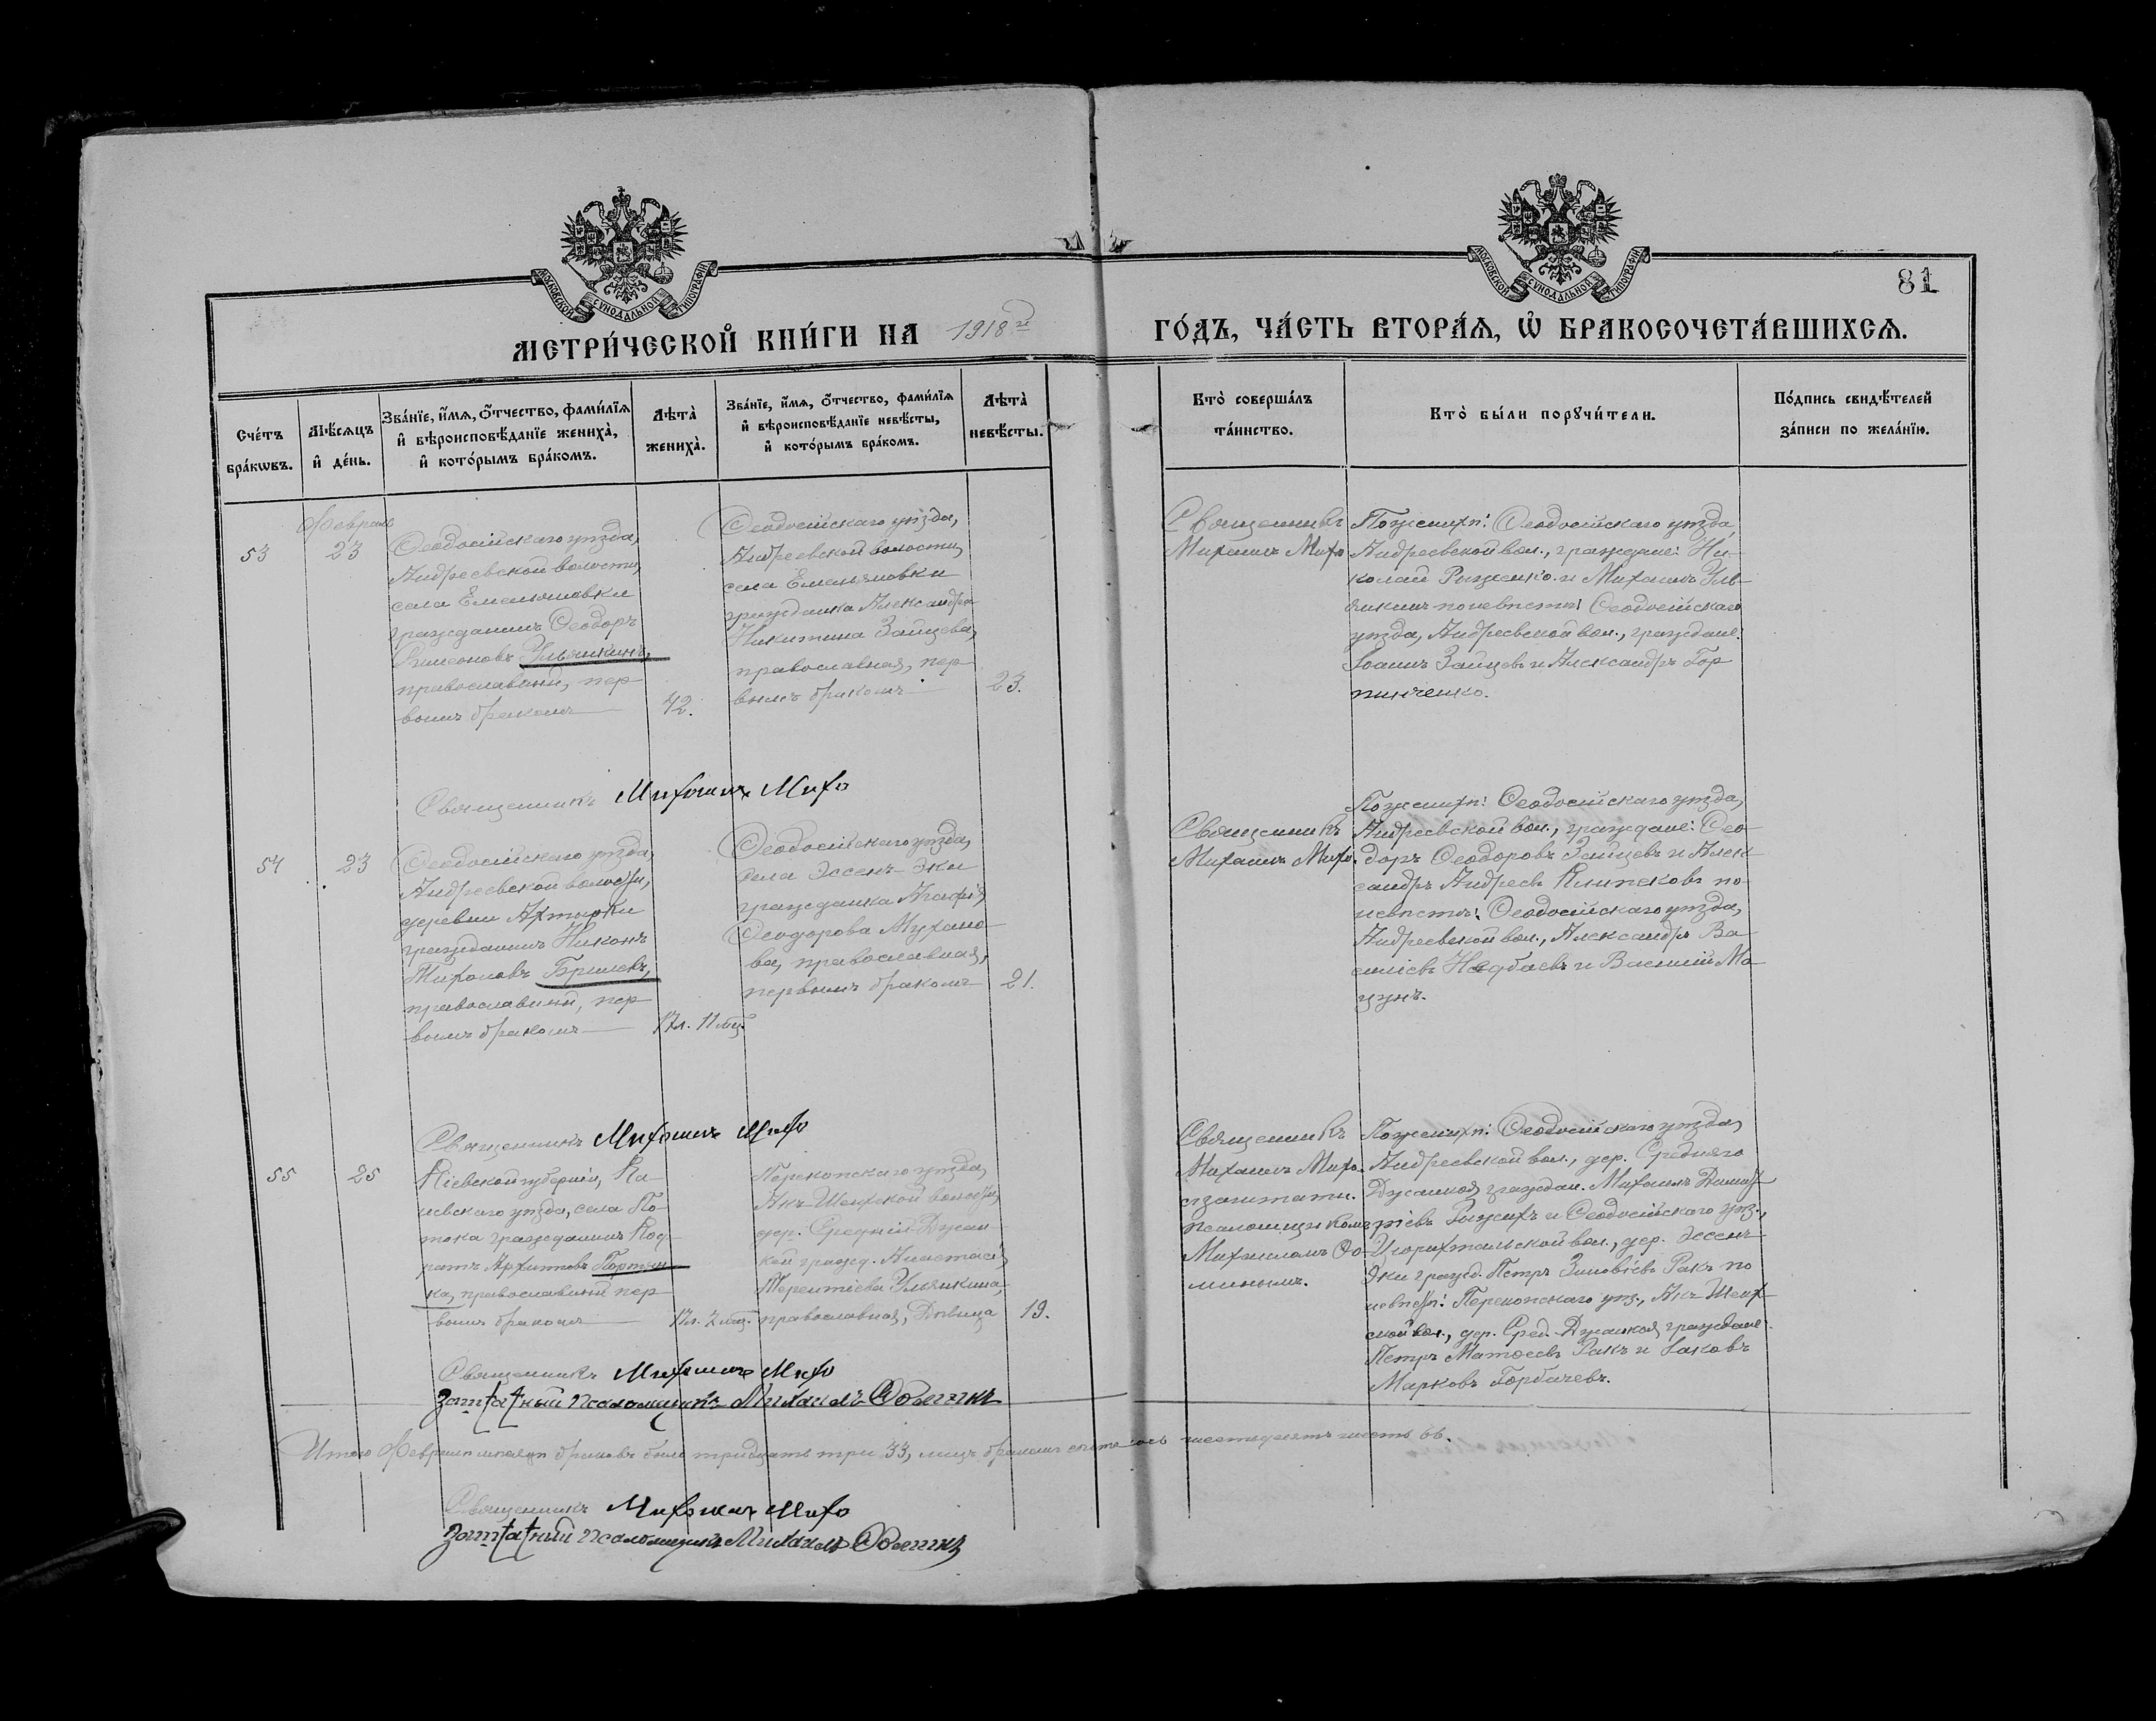 МОСКОВСКОЙ СУНОДАЛЬНОЙ ТИПОГРАФІИ
МОСКОВСКОЙ СУНОДАЛЬНОЙ ТИПОГРАФІИ
81
МЕТРИ́ЧЕСКОЙ КНИ́ГИ НА 1918 й
ГО́ДЪ, ЧА́СТЬ ВТОРА́Ѧ, Ѽ БРАКОСОЧЕТА́ВШИХСѦ.
Сче́тъ бра́кѡвъ.
Мѣ́сѧцъ и҆ де́нь.
Зва́нїе, и҆́мѧ, о҆́тчество, фами́лїѧ и҆ вѣроисповѣ́данїе жениха̀, и҆ кото́рымъ бра́комъ.
Лѣта̀ жениха̀.
Зва́нїе, и҆́мѧ, о҆́тчество, фами́лїѧ и҆ вѣроисповѣ́данїе невѣ́сты, и҆ кото́рымъ бра́комъ.
Лѣта̀ невѣ́сты.
Кто̀ соверша́лъ та́инство.
Кто̀ бы́ли порꙋчи́тели.
По́дпись свидѣ́телей за́писи по жела́нїю.
Февраль
53
23
Ѳеодосійскаго уѣзда,
Андреевской волости,
села Емельяновки
гражданинъ Ѳеодоръ
Симеоновъ Ульянкинъ,
православный, пер
вымъ бракомъ
42.
Ѳеодосійскаго уѣзда,
Андреевской волости,
села Емельяновки
гражданка Александра
Никитина Зайцева,
православная, пер
вымъ бракомъ
23.
Священникъ
Михаилъ Михо
По женихѣ: Ѳеодосійскаго уѣзда
Андреевской вол., граждане: Ни-
колай Рыженко и Михаилъ Уль-
янкинъ по невѣстѣ: Ѳеодосійскаго
уѣзда, Андреевской вол., граждане.
Іоаннъ Зайцевъ и Александръ Гор
пинченко.
Священникъ Михаилъ Михо
54
23
Ѳеодосійскаго уѣзда,
Андреевской волости,
деревни Ахтырки
гражданинъ Никонъ
Тихоновъ Брилевъ,
православный, пер
вымъ бракомъ
17 л. 11 мѣц.
Ѳеодосійскаго уѣзда,
села Эссенъ-Эки
гражданка Агафія
Ѳеодорова Мухано
ва, православная,
первымъ бракомъ
21.
Священникъ
Михаилъ Михо.
По женихѣ: Ѳеодосійскаго уѣзда,
Андреевской вол., граждане: Ѳео
доръ Ѳеодоровъ Зайцевъ и Алек
сандръ Андреевъ по
невѣстѣ: Ѳеодосійскаго уѣзда,
Андреевской вол., Александръ Ва
силіевъ Недбаевъ и Василій Ма
цунъ.
Священникъ Михаилъ Михо
55
25
Кіевской губерніи, Ка-
невскаго уѣзда, села По-
тока гражданинъ Код-
ратъ Архиповъ Портян
ка, православный пер
вымъ бракомъ
17 л. 2 мѣц.
Перекопскаго уѣзда,
Акъ-Шеихской волости,
дер. Средній-Джан
кой гражд. Анастасія
Терентіева Ульянкина,
православная, Дѣвица
19.
Священникъ
Михаилъ Михо.
с заштатн.
псаломщикомъ
Михаиломъ Ѳо-
минымъ.
По женихѣ: Ѳеодосійскаго уѣзда,
Андреевской вол., дер. Средняго
Джанкоя граждан. Михаилъ Димит
ріевъ Рыжихъ и Ѳеодосійскаго уѣз.,
Цюрихтальской вол., дер. Эссенъ-
Эки гражд. Петръ Зиновіевъ Ракъ по
невѣстѣ: Перекопскаго уѣз., Акъ-Шеих
ской вол., дер. Сред. Джанкоя, граждане:
Петръ Матѳеевъ Ракъ и Іаковъ
Марковъ Горбачевъ.
Священникъ Михаилъ Михо
Заштатный псаломщикъ Михаилъ Ѳоминъ
Итого Февралѣ мѣсяцѣ браковъ было тридцать три 33, лицъ бракомъ сочеталось шестьдесятъ шесть 66.
Священникъ Михаилъ Михо
Заштатный псаломщикъ Михаилъ Ѳоминъ